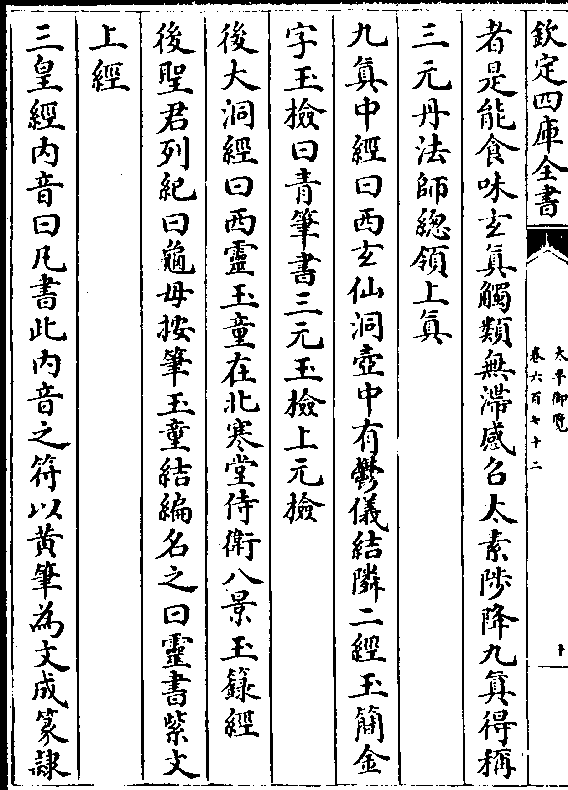 欽定四庫全書
太平御覽
卷六百七十二
十
者是能食味玄真觸類無滯感召太素陟降九真得稱
三元丹法師總領上真
九真中經曰西玄仙洞壺中有鬱儀結隣二經玉簡金
字玉檢曰青筆書三元玉檢上元檢
後大洞經曰西靈玉童在北寒堂侍衛八景玉籙經
後聖君列紀曰龜母按筆玉童結編名之曰靈書紫文
上經
三皇經內音曰凡書此內音之符以黃筆為文成篆隷